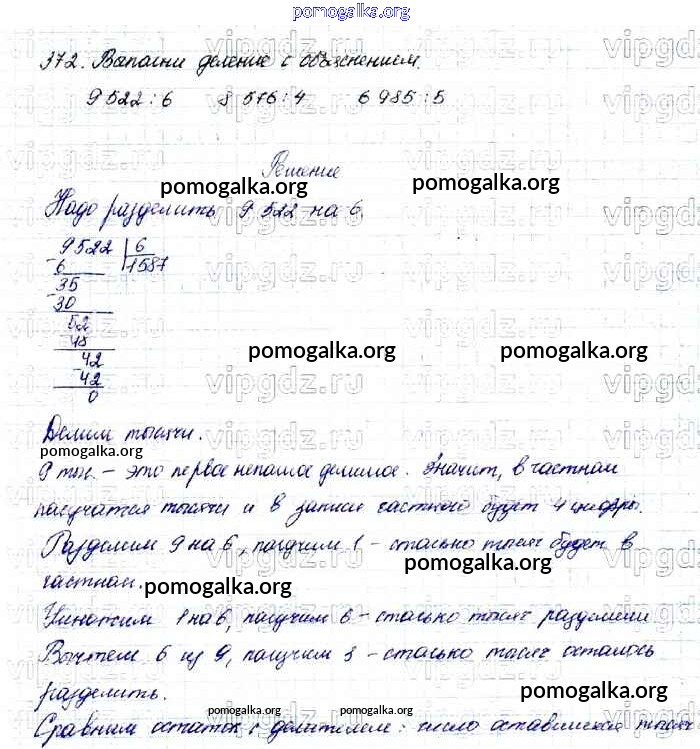 pomogalka.org
372. Выполни деление с объяснением.
9522:6 8576:4 6985:5
Решение
pomogalka.org pomogalka.org
Надо разделить 9522 на 6.
9522 6
-6 1587
35
-30
52
48
42
-42
0
pomogalka.org pomogalka.org
Делим тысячи.
pomogalka.org
9 тыс. – это первое неполное делимое. Значит, в частном
получатся тысячи и в записи частного будет 4 цифры.
Разделим 9 на 6, получим 1 – столько тысяч будет в
pomogalka.org
частном.
pomogalka.org
Умножим 1 на 6, получим 6 – столько тысяч разделили
Вычтем 6 из 9, получим 3 – столько тысяч осталось
разделить.
pomogalka.org
pomogalka.org
Сравним остаток с делителем: число оставшихся тысяч